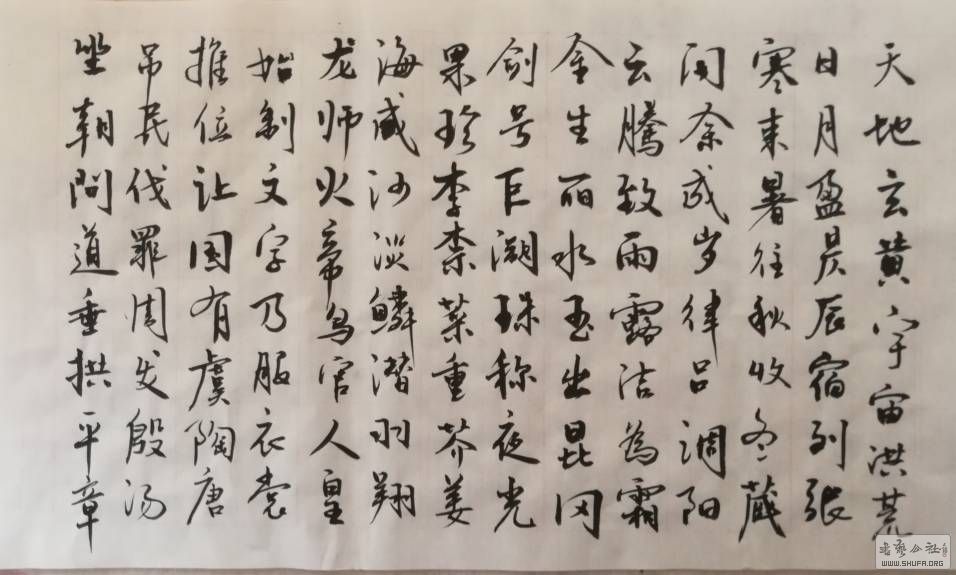 天地玄黄宇宙洪荒
日月盈昃辰宿列张
寒来暑往秋收冬藏
闰余成岁律吕调阳
云腾致雨露洁為霜
金生丽水玉出昆冈
剑号巨阙珠称夜光
果珍李柰菜重芥姜
海咸河淡鳞潜羽翔
龙师火帝鸟官人皇
始制文字乃服衣裳
推位让国有虞陶唐
吊民伐罪周发殷汤
坐朝问道垂拱平章
书艺公社
WWW.SHUFA.ORG